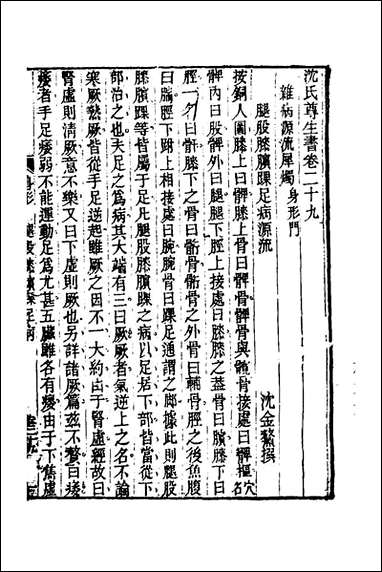 沈氏尊生書卷二十九
雜病源流犀燭 身形門
沈金鰲撰
腿股膝臏踝足病源流
按銅人圖膝上骨曰髀骨髀骨與髋骨接處曰髀樞穴名
髀內曰股髀外曰腿腿下脛上接處曰膝膝之蓋骨曰臏膝下曰
脛一名曰骸膝下之骨曰骱骨骱骨之外骨曰輔骨脛之後魚腹
曰腨脛下跗上相接處曰腕腕骨曰踝足通謂之脚據此則腿股
膝臏踝等皆屬于足凡腿股膝臏踝之病以足居下部皆當從下
部治之也夫足之為病其大端有三曰厥厥者氣逆上之名不論
寒厥熱厥皆從手足逆起雖厥之因不一大約由于腎虛經故曰
腎虛則清厥意不樂又曰下虛則厥也另詳諸厥篇茲不贅曰痿
痿者手足痿弱不能運動足為尤甚五臟雖各有變由于下舊虛
身形 腿股膝臏踝足病
卷二十九